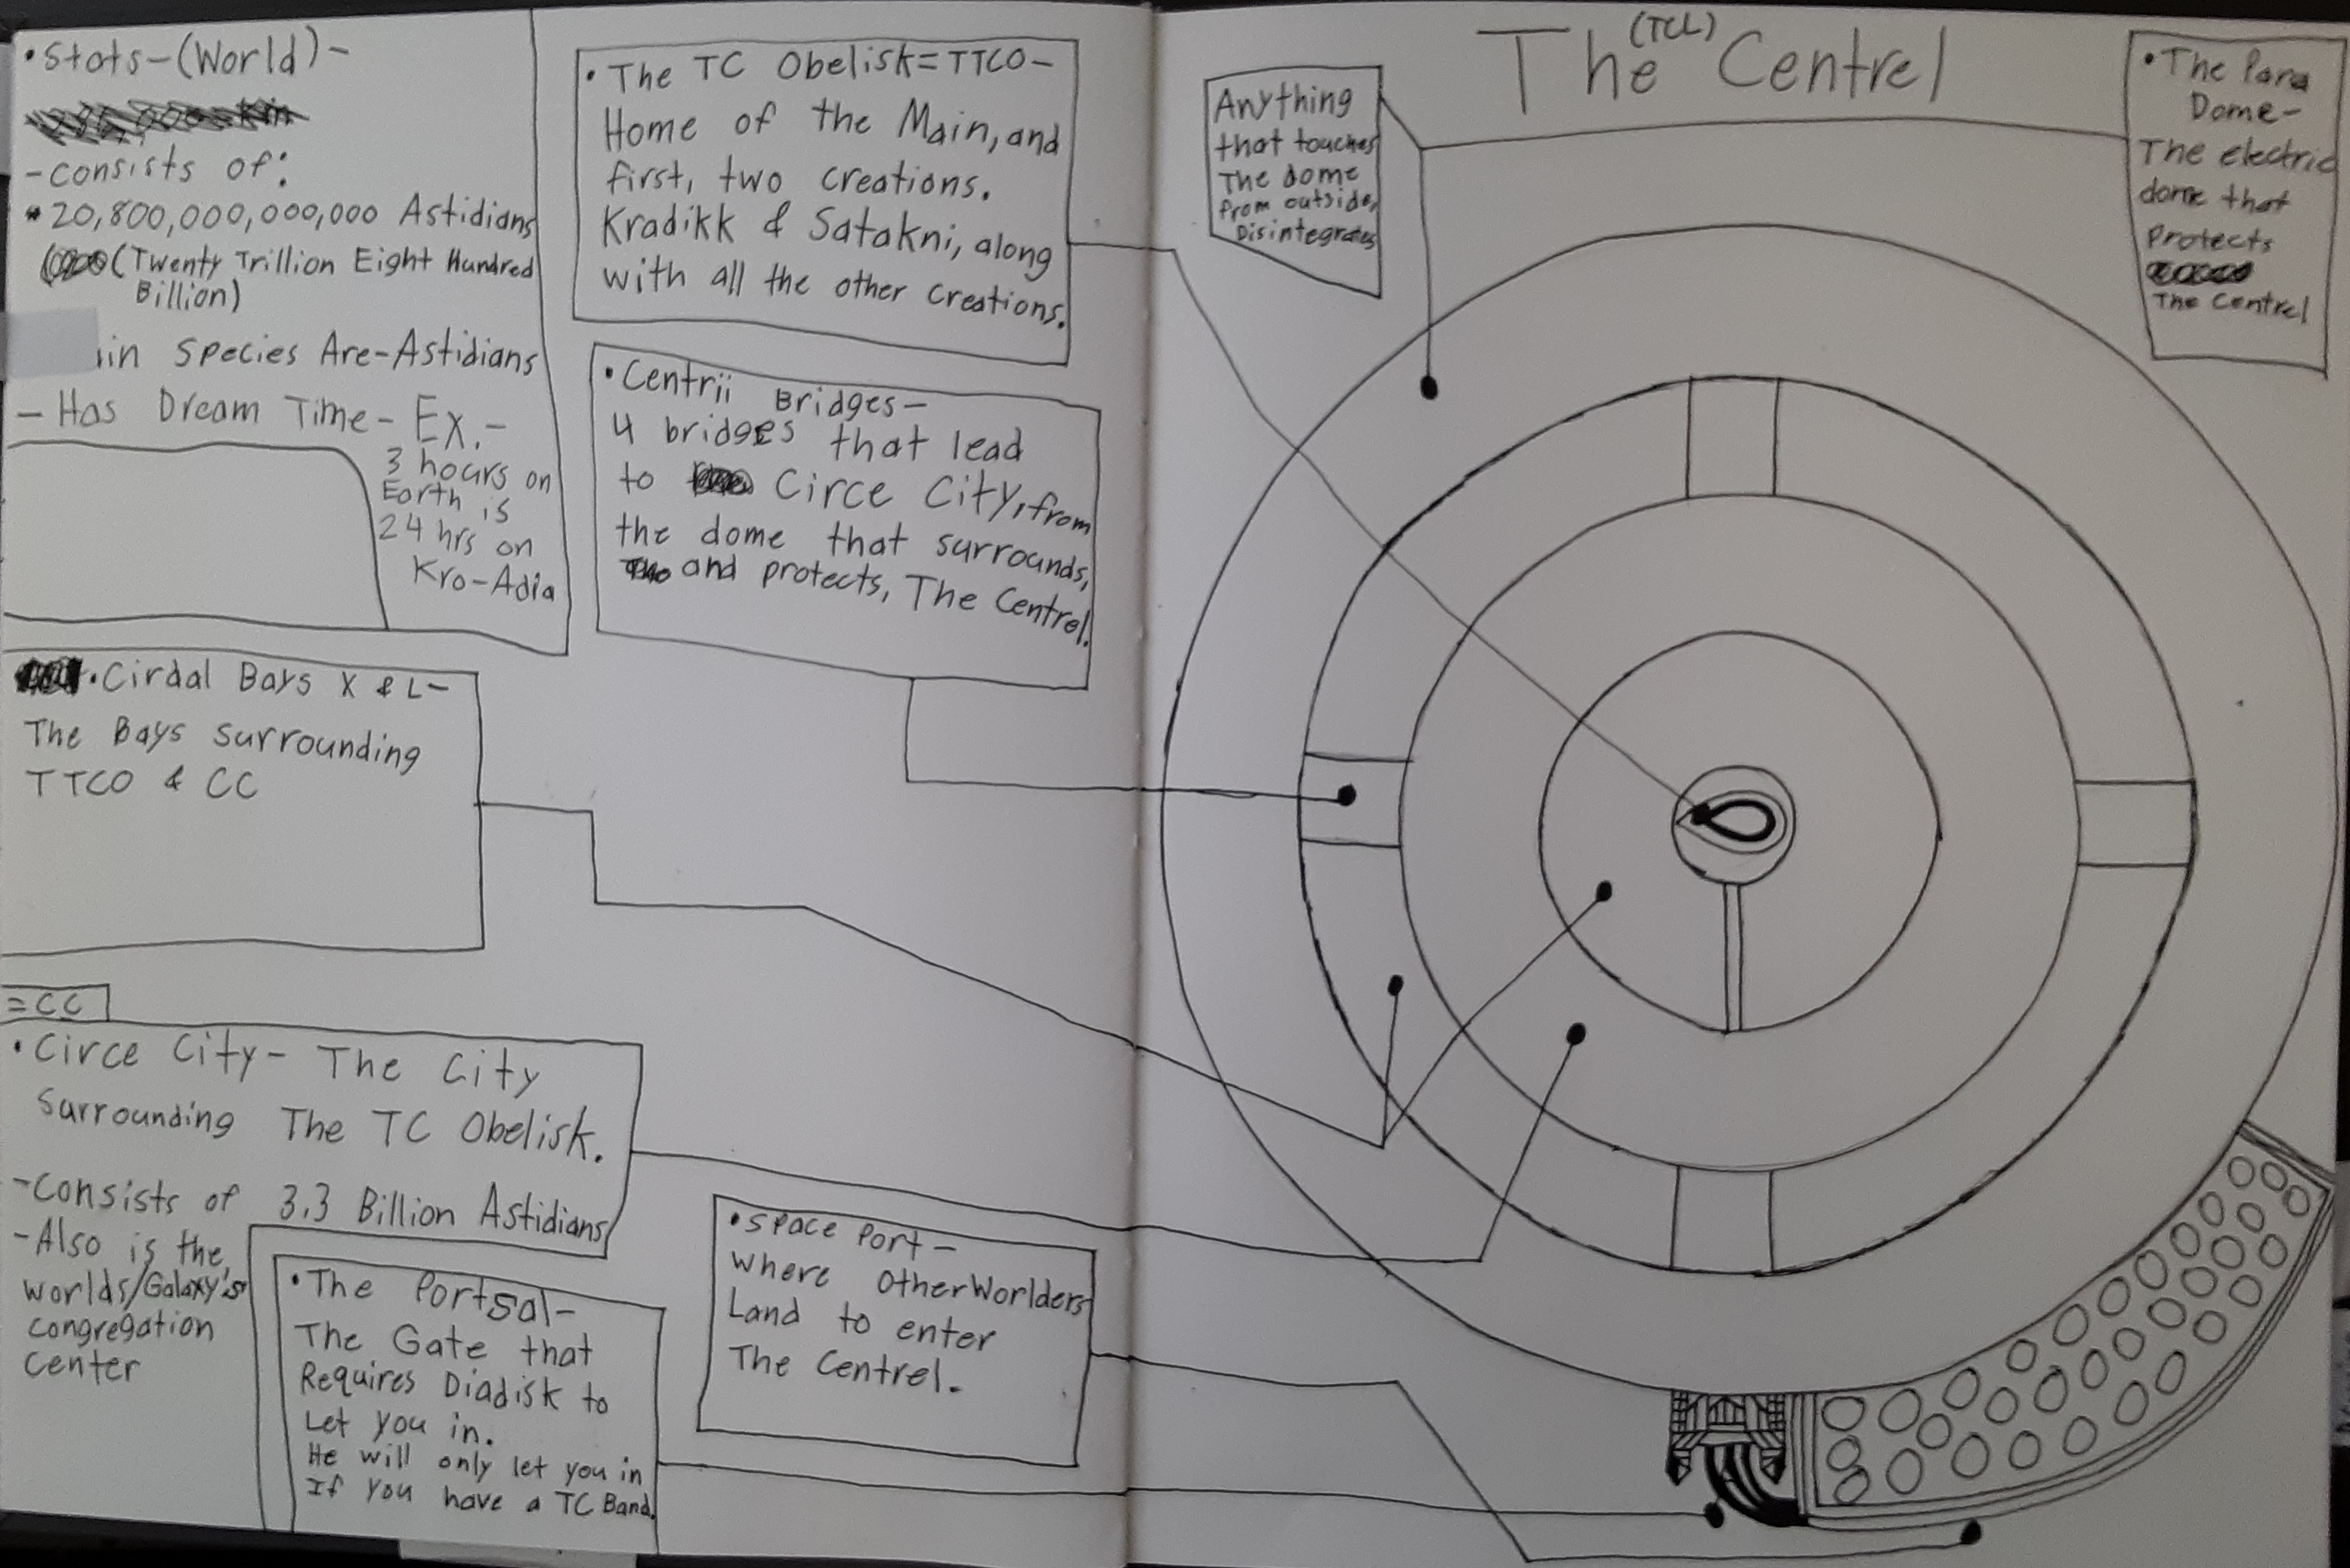 •Stats-(World)-
-consists of:
• 20,800,000,000,000 Astidians
(Twenty Trillion Eight Hundred
Billion)
Species Are-Astidians
- Has Dream Time- Ex.-
3 hours on
Earth is
24 hrs on
Kro-Adia
•Cirdal Bays X & L-
The Bays surrounding
TTCO & CC
=CC
•Circe City- The City
surrounding The TC Obelisk.
-consists of 3.3 Billion Astidians
-Also is the
worlds/Galaxy's
congregation
center
•The Portsal-
The Gate that
Requires Diadisk to
Let you in.
He will only let you in
If you have a TC Band.
•The TC Obelisk=TTCO-
Home of the Main, and
first, two creations.
Kradikk & Satakni, along
with all the other creations.
•Centrii Bridges-
4 bridges that lead
to Circe City, from
the dome that surrounds,
and protects, The Centrel.
•Space Port-
where OtherWorlders
Land to enter
The Centrel.
(TCL)
The Centrel
Anything
that touches
The dome
from outside,
Disintegrates
•The Para
Dome-
The electric
dome that
Protects
The Centrel